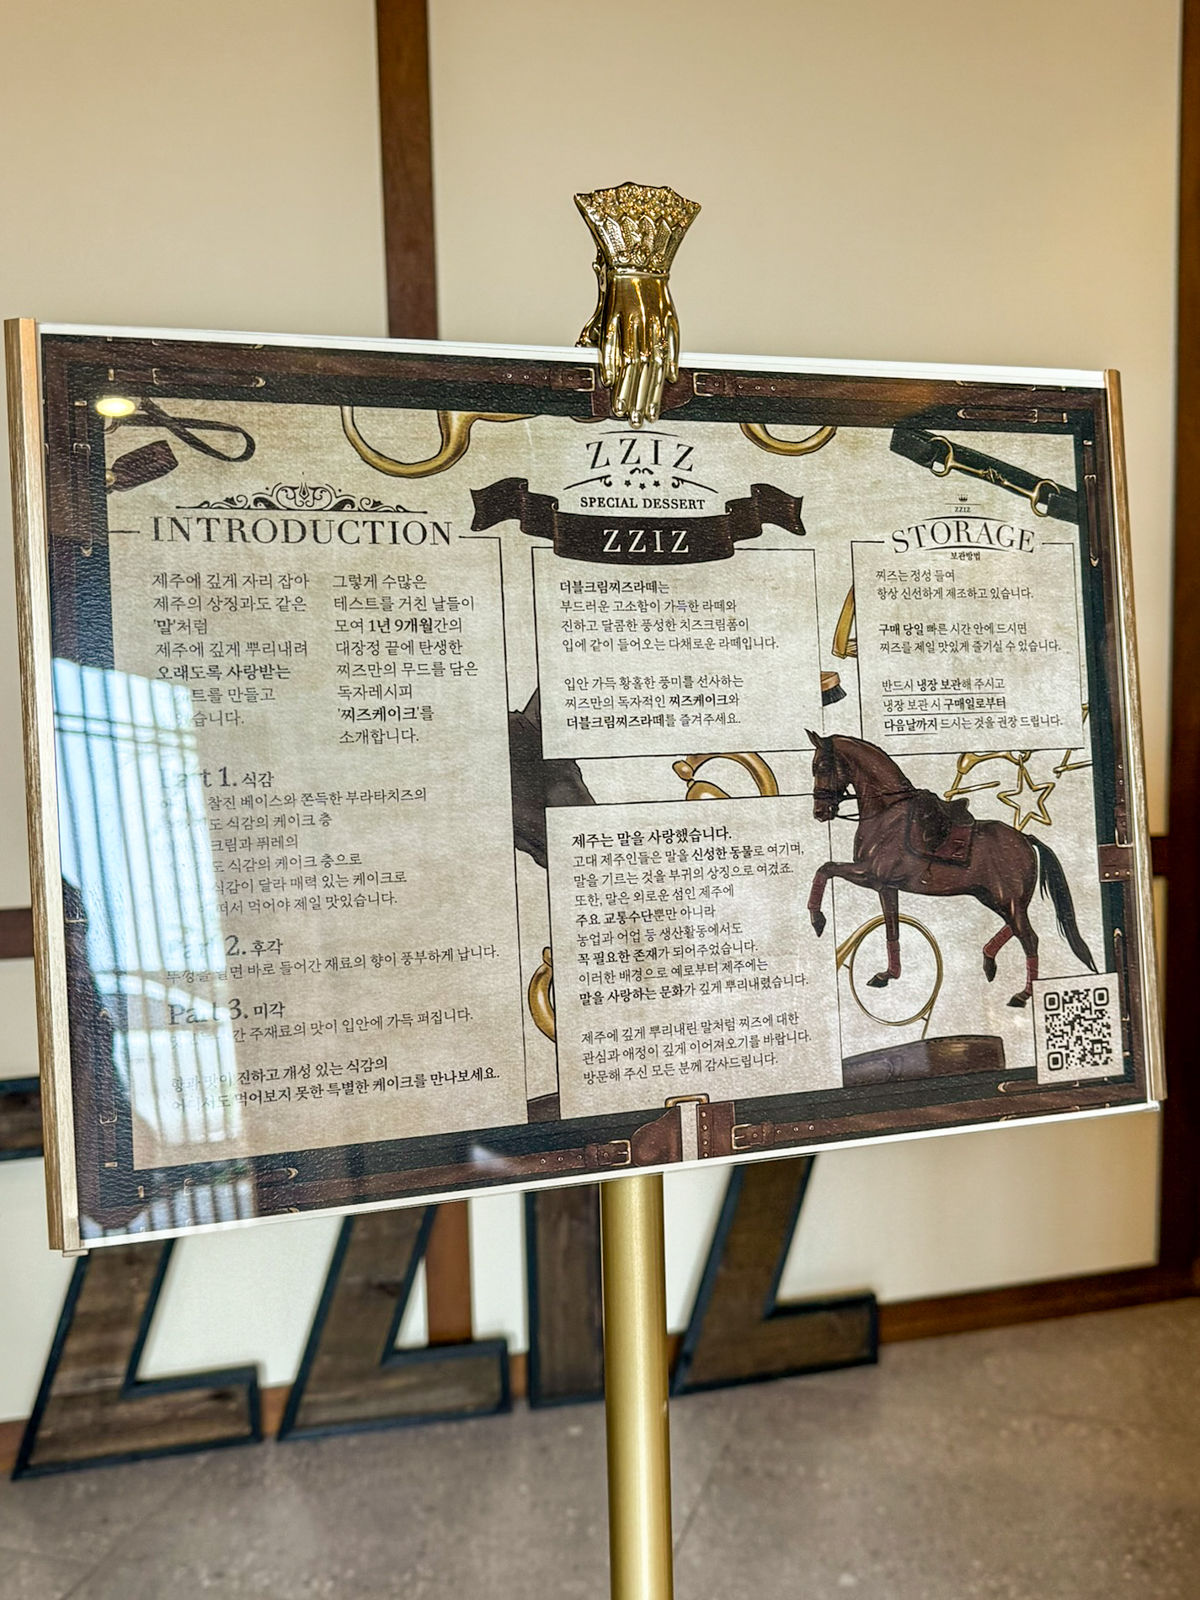 ZZIZ
SPECIAL DESSERT
ZZIZ
INTRODUCTION
제주에 깊게 자리 잡아
제주의 상징과도 같은
'말'처럼
제주에 깊게 뿌리내려
오래도록 사랑받는
트를 만들고
습니다.
그렇게 수많은
테스트를 거친 날들이
모여 1년 9개월간의
대장정 끝에 탄생한
찌즈만의 무드를 담은
독자레시피
'찌즈케이크'를
소개합니다.
Part 1. 식감
찰진 베이스와 쫀득한 부라타치즈의
도 식감의 케이크 층
크림과 퓌레의
도 식감의 케이크 층으로
식감이 달라 매력 있는 케이크로
먹어야 제일 맛있습니다.
Part 2. 후각
뚜껑을 열면 바로 들어간 재료의 향이 풍부하게 납니다.
Part 3. 미각
주재료의 맛이 입안에 가득 퍼집니다.
향과 맛이 진하고 개성 있는 식감의
어디서도 먹어보지 못한 특별한 케이크를 만나보세요.
더블크림찌즈라떼는
부드러운 고소함이 가득한 라떼와
진하고 달콤한 풍성한 치즈크림폼이
입에 같이 들어오는 다채로운 라떼입니다.
입안 가득 황홀한 풍미를 선사하는
찌즈만의 독자적인 찌즈케이크와
더블크림찌즈라떼를 즐겨주세요.
제주는 말을 사랑했습니다.
고대 제주인들은 말을 신성한 동물로 여기며,
말을 기르는 것을 부귀의 상징으로 여겼죠.
또한, 말은 외로운 섬인 제주에
주요 교통수단뿐만 아니라
농업과 어업 등 생산활동에서도
꼭 필요한 존재가 되어주었습니다.
이러한 배경으로 예로부터 제주에는
말을 사랑하는 문화가 깊게 뿌리내렸습니다.
제주에 깊게 뿌리내린 말처럼 찌즈에 대한
관심과 애정이 깊게 이어져오기를 바랍니다.
방문해 주신 모든 분께 감사드립니다.
ZZIZ
STORAGE
보관방법
찌즈는 정성 들여
항상 신선하게 제조하고 있습니다.
구매 당일 빠른 시간 안에 드시면
찌즈를 제일 맛있게 즐기실 수 있습니다.
반드시 냉장 보관해 주시고
냉장 보관 시 구매일로부터
다음날까지 드시는 것을 권장 드립니다.
ZZIZ